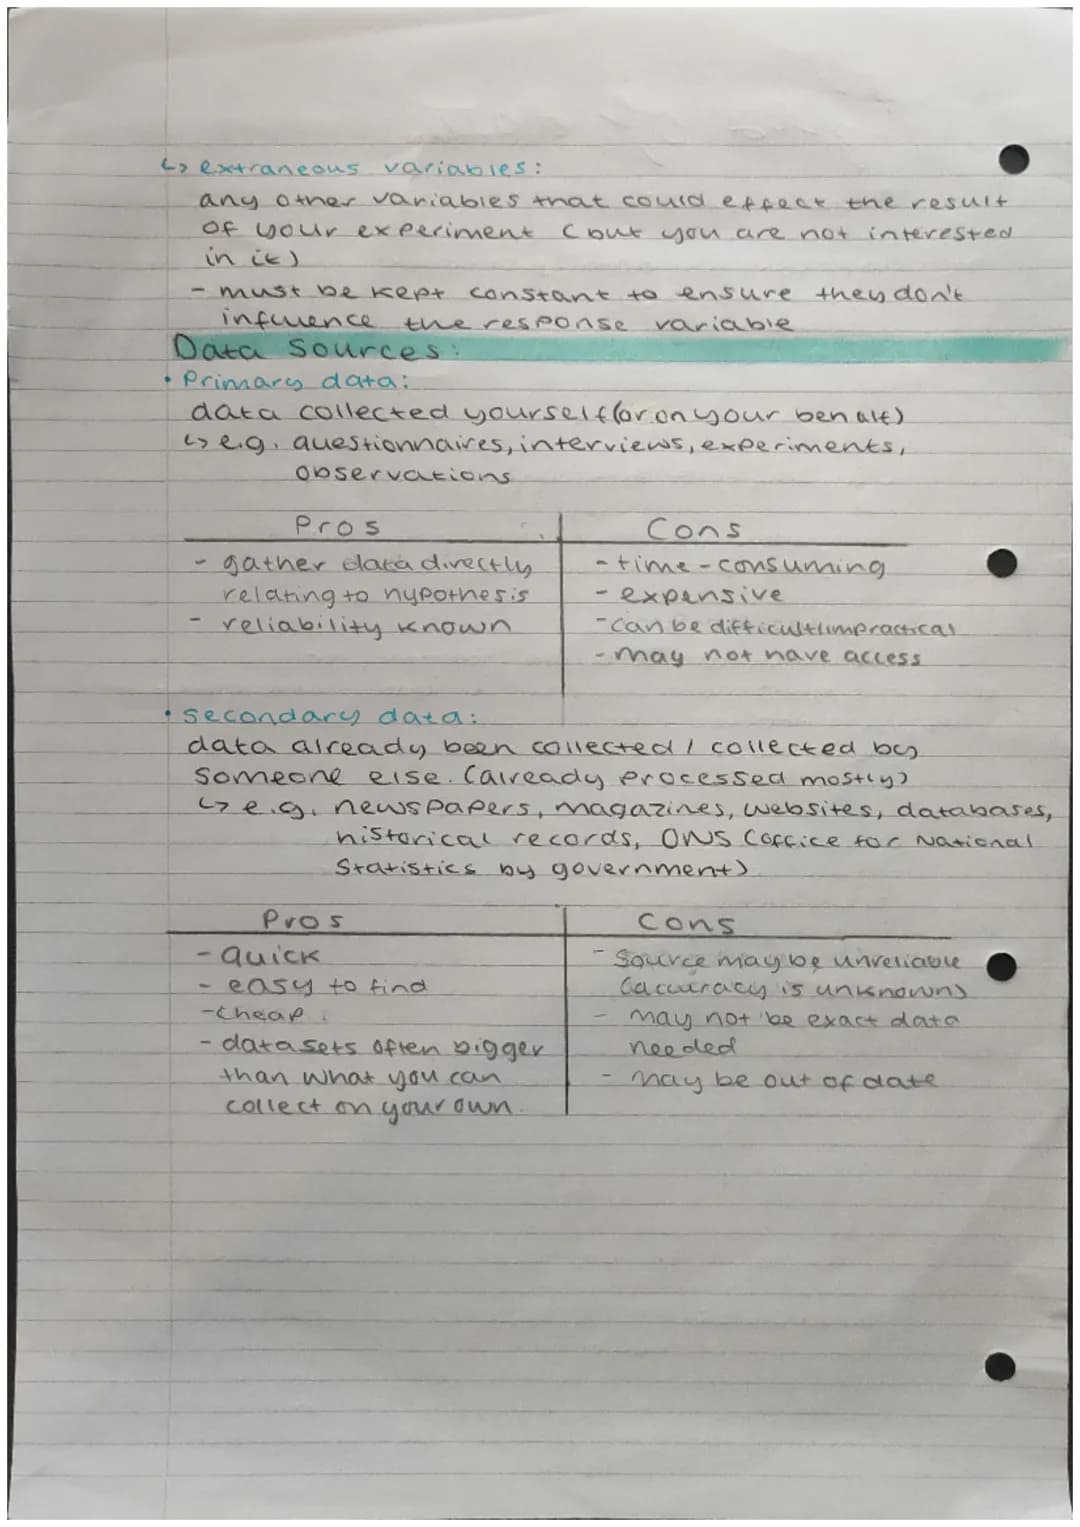 ↳ extraneous variables:
any other variables that could effect the result
of your experiment (but you are not interested
in it)
- must be kept constant to ensure they don't
influence the response variable
Data Sources:
• Primary data:
data collected yourself (or on your behalf)
↳ e.g. questionnaires, interviews, experiments,
observations
Pros
- gather data directly
relating to hypothesis
- reliability known
Cons
- time-consuming
- expensive
- can be difficult/impractical
- may not have access
• secondary data:
data already been collected / collected by
someone else. (already processed mostly)
↳ e.g. newspapers, magazines, websites, databases,
historical records, ONS (office for National
Statistics by government)
Pros
- quick
- easy to find
- cheap
- data sets often bigger
than what you can
collect on your own.
Cons
- Source may be unreliable
(accuracy is unknown)
- may not be exact data
needed
- may be out of date